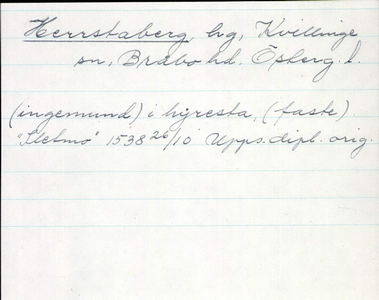 Herrstaberg, hg, Kvillinge
sn, Bråbo hd. Österg. l.
(ingemund) i hyresta, (faste)
"Sletmo" 1538 26/10 Upps. dipl. orig.